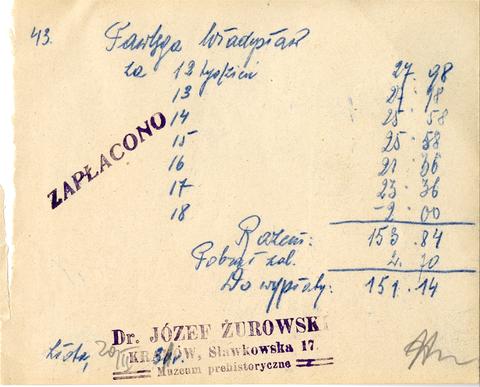 43. Władysław
za 12 tydzień 27.98
13 27.98
14 25.58
15 25.58
16 21.36
17 23.36
18 -2.00
Razem: 153.84
Pobrał zal. 2.70
Do wypłaty: 151.14
ZAPŁACONO
Dr. JÓZEF ŻUROWSKI
KRAKÓW, Sławkowska 17
Muzeum prehistoryczne